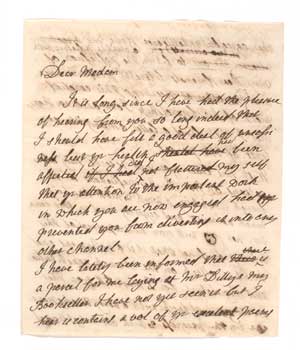 Dear Madam
It is long since I have had the pleasure
of hearing from you so long indeed that
I should have felt a good deal of uneasi
ness lest yr health should have been
affected if I had not flattered my self
that yr attention to the important work
in which you are now engaged had
prevented you from diverting it into any
other channel
I have lately been informed that there is
a parcel for me laying at Mr Dillys my
Bookseller I have not yet seen it but I
hear it contains a vol of yr excelent poems